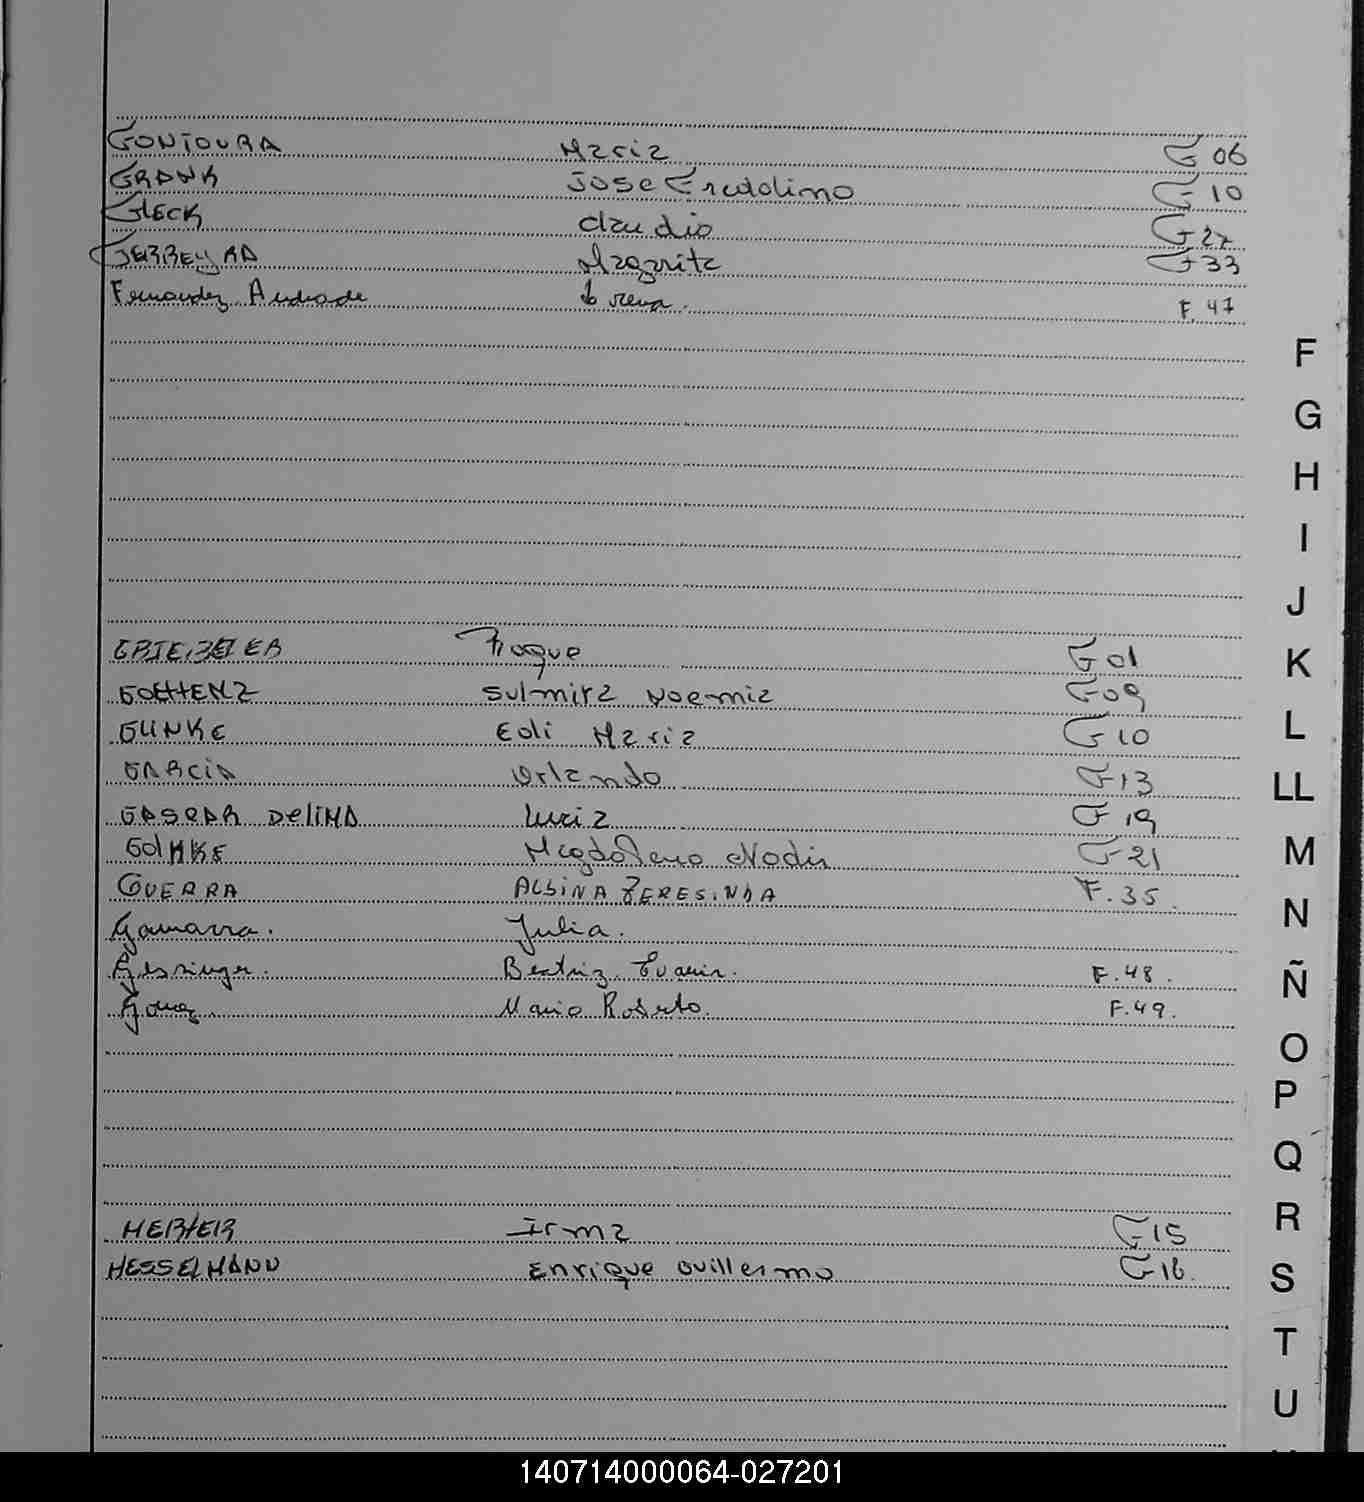 FONTOURA Maria F 06
FRANK Jose Fredolino F 10
FLECK Claudio F 27
FERREYRA Margarita F 33
Fernandez Andrade Lorena. F. 47
F
G
H
I
J
GRIEBELER Roque F 01
K
GOTTENZ Sulmira Noemia F 09
GLINKE Edi Maria F 10
L
GARCIA Orlando F 13
LL
GASPAR DeLIMA Lucia F 19
GOLNKE Magdalena Nadir F 21
M
GUERRA ALBINA TERESINHA F. 35
N
Gamarra. Julia.
Gessinger. Beatriz F. 48.
Ñ
Gomez Mario Roberto. F. 49.
O
P
Q
R
HERTER Irma F 15
HESSELMANN Enrique Guillermo F 16.
S
T
U
140714000064-027201